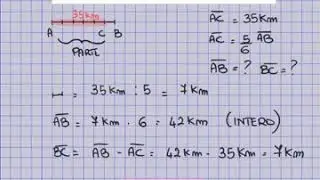 35km
A C B
PARTE
AC = 35 Km
AC = 5/6 AB
AB = ? BC = ?
= 35 Km : 5 = 7 Km
AB = 7 Km · 6 = 42 Km (INTERO)
BC = AB - AC = 42 Km - 35 Km = 7 Km